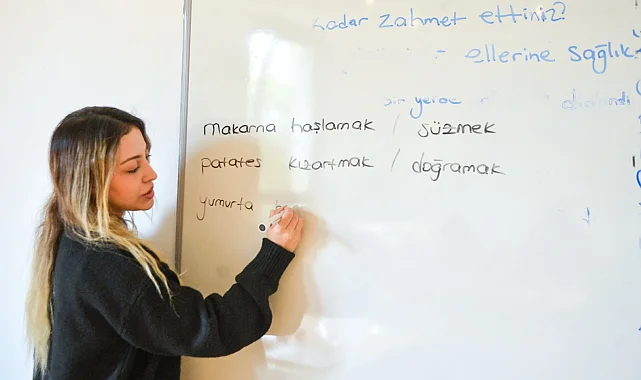 kadar zahmet ettiniz?
ellerine sağlık
bir
makarna haşlamak / süzmek
patates kızartmak / doğramak
yumurta